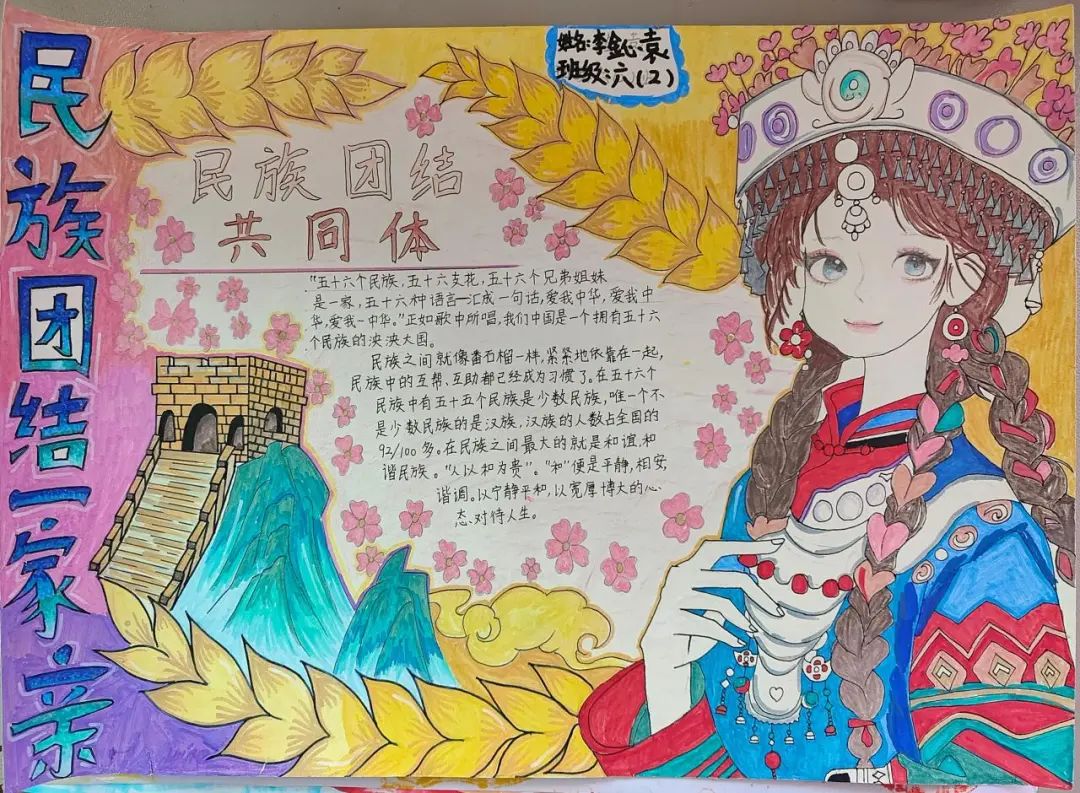 民族团结一家亲
姓名:李鈊袁
班级:六(2)
民族团结
共同体
"五十六个民族,五十六支花,五十六个兄弟姐妹
是一家,五十六种语言汇成一句话,爱我中华,爱我中
华,爱我一中华。"正如歌中所唱,我们中国是一个拥有五十六
个民族的泱泱大国。
民族之间就像番石榴一样,紧紧地依靠在一起,
民族中的互帮、互助都已经成为习惯了。在五十六个
民族中有五十五个民族是少数民族,唯一个不
是少数民族的是汉族,汉族的人数占全国的
92/100多。在民族之间最大的就是和谊,和
谐民族。"人以和为贵"。"和"便是平静,相安,
谐调。以宁静平和,以宽厚博大的心
态对待人生。